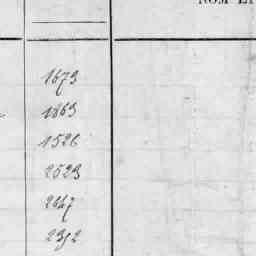 NOM ET
1673
1863
1526
2523
2647
2352